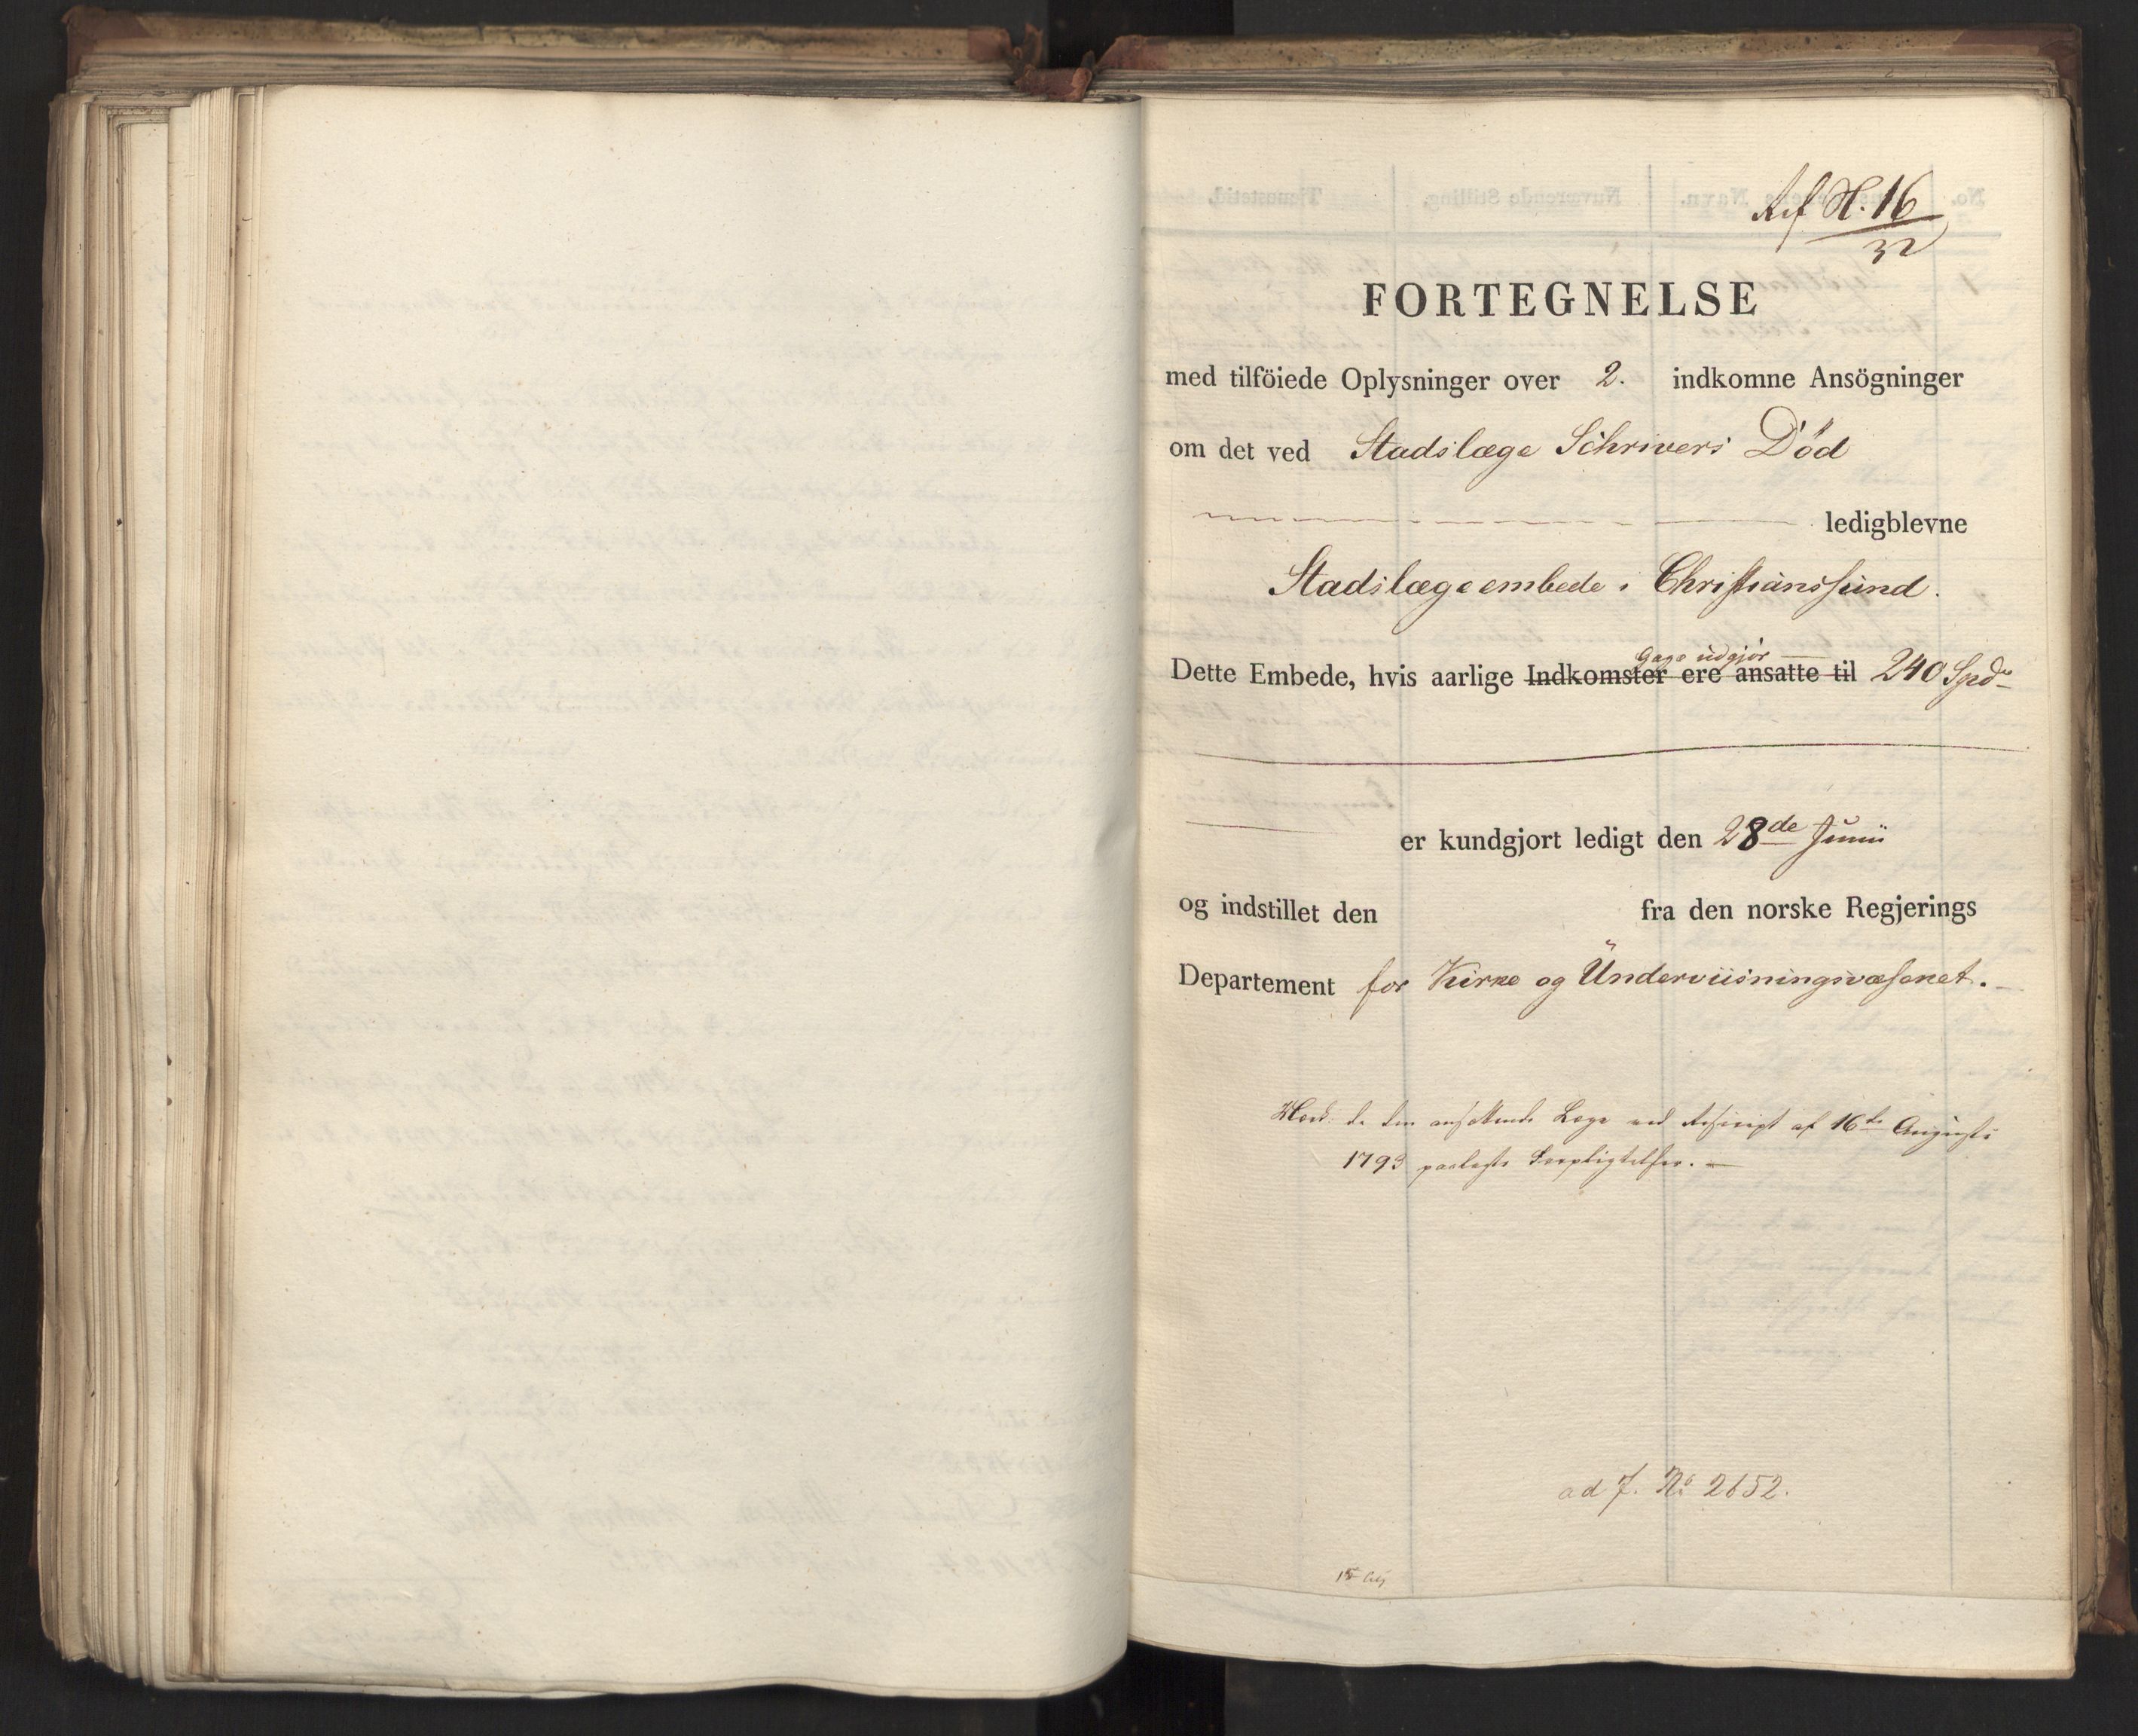 Ref H. 16
32
FORTEGNELSE
med tilföiede Oplysninger over 2. indkomne Ansögninger
om det ved Stadslæge Schrivers Död
ledigblevne
Stadslægeembede i Christianssund.
Gage udgjør
Dette Embede, hvis aarlige Indkomster ere ansatte til 240 Spd
er kundgjort ledigt den 28de Junii
og indstillet den fra den norske Regjerings
Departement for Kirke og Underviisningsvæsenet.
de den ansættende Læge ved Rescript af 16de Augusti
1793 paalagte Forpligtelser.
ad J. No 2652.